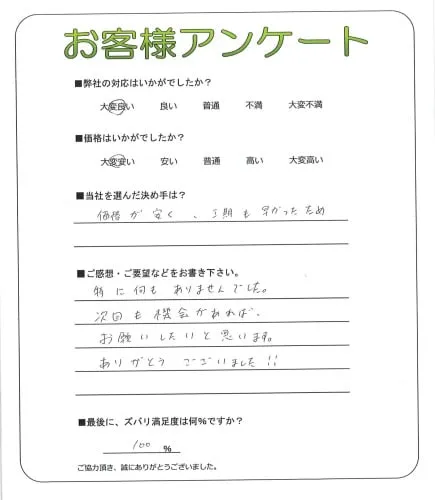 お客様アンケート
■弊社の対応はいかがでしたか?
大変良い 良い 普通 不満 大変不満
■価格はいかがでしたか?
大変安い 安い 普通 高い 大変高い
■当社を選んだ決め手は?
価格が安く、工期も早かったため
■ご感想・ご要望などをお書き下さい。
特に何もありませんでした。
次回も機会があれば、
お願いしたいと思います。
ありがとうございました!!
■最後に、ズバリ満足度は何%ですか?
100 %
ご協力頂き、誠にありがとうございました。